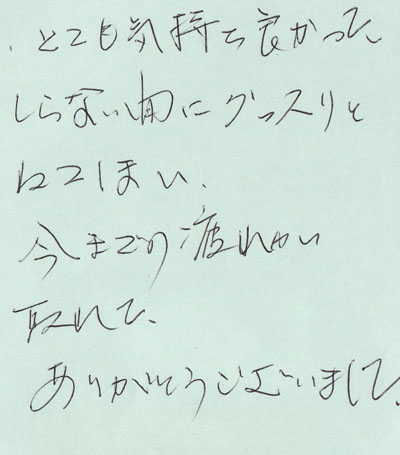 ・とても気持ち良かった、
しらない間にグッスリと
ねてしまい、
今までの疲れが
取れて、
ありがとうございました。